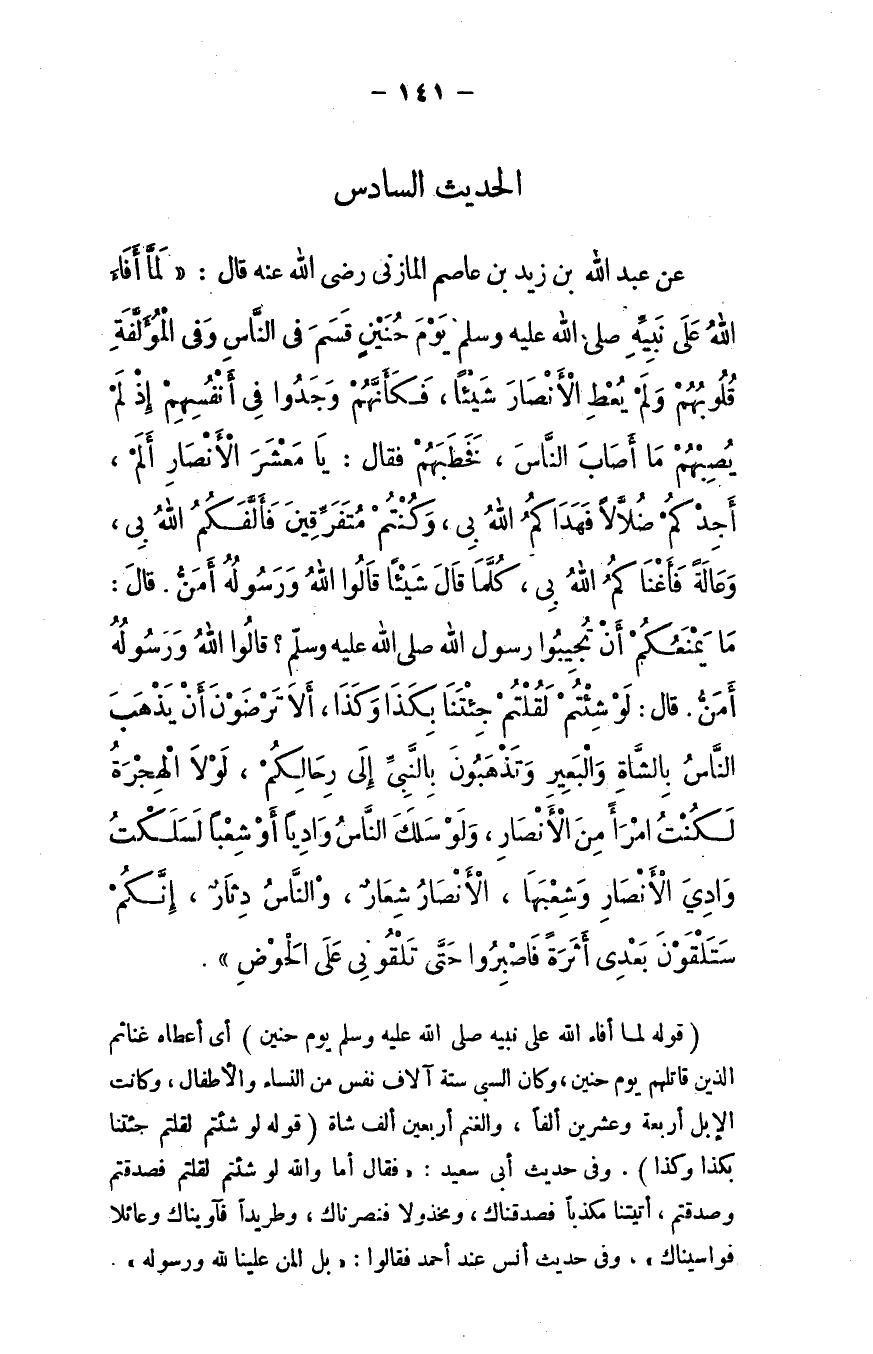 – ١٤١ –
الحديث السادس
عن عبد الله بن زيد بن عاصم المازنى رضى الله عنه قال : « لَمَّا أَفَاءَ
اللهُ عَلَى نَبِيِّهِ صلى الله عليه وسلم يَوْمَ حُنَيْنٍ قَسَمَ فى النَّاسِ وَفى الْمُؤَلَّفَةِ
قُلُوبُهُمْ وَلَمْ يُعْطِ الْأَنْصَارَ شَيْئًا ، فَكَأَنَّهُمْ وَجَدُوا فِى أَنْفُسِهِمْ إِذْ لَمْ
يُصِبْهُمْ مَا أَصَابَ النَّاسَ ، فَخَطَبَهُمْ فقال : يَا مَعْشَرَ الْأَنْصَارِ أَلَمْ ،
أَجِدْكُمْ ضُلَّالاً فَهَدَاكُمُ اللهُ بِى ، وَكُنْتُمْ مُتَفَرِّقِينَ فَأَلَّفَكُمُ اللهُ بِى ،
وَعَالَةً فَأَغْنَاكُمُ اللهُ بِى ، كُلَّمَا قَالَ شَيْئًا قَالُوا اللهُ وَرَسُولُهُ أَمَنُّ . قالَ :
مَا يَمْنَعُكُمْ أَنْ تُجِيبُوا رسول الله صلى الله عليه وسلّم ؟ قالُوا اللهُ وَرَسُولُهُ
أَمَنُّ . قال : لَوْ شِئْتُمْ لَقُلْتُمْ جِئْتَنَا بِكَذَا وَكَذَا ، أَلاَ تَرْضَوْنَ أَنْ يَذْهَبَ
النَّاسُ بِالشَّاةِ وَالْبَعِيرِ وَتَذْهَبُونَ بِالنَّبِىِّ إِلَى رِحَالِكُمْ ، لَوْلاَ الْهِجْرَةُ
لَكُنْتُ امْرَأً مِنَ الْأَنْصَارِ ، وَلَوْ سَلَكَ النَّاسُ وَادِياً أَوْ شِعْباً لَسَلَكْتُ
وَادِيَ الْأَنْصَارِ وَشِعْبَهَا ، الْأَنْصَارُ شِعَارٌ ، وْالنَّاسُ دِثَارٌ ، إِنَّكُمْ
سَتَلْقَوْنَ بَعْدِى أَثَرَةً فَاصْبِرُوا حَتَّى تَلْقُونِى عَلَى الْحَوْضِ » .
( قوله لمــا أفاء الله على نبيه صلى الله عليه وسلم يوم حنين ) أى أعطاه غنائم
الذين قاتلهم يوم حنين ، وكان السبى ستة آلاف نفس من النساء والأطفال ، وكانت
الإبل أربعة وعشرين ألفاً ، والغنم أربعين ألف شاة ( قوله لو شئتم لقلتم جئتنا
بكذا وكذا ) . وفى حديث أبى سعيد : « فقال أما والله لو شئتم لقلتم فصدقتم
وصدقتم ، أتيتنا مكذباً فصدقناك ، ومخذولا فنصرناك ، وطريداً فآويناك وعائلا
فواسيناك » ، وفى حديث أنس عند أحمد فقالوا : « بل المن علينا لله ورسوله » .